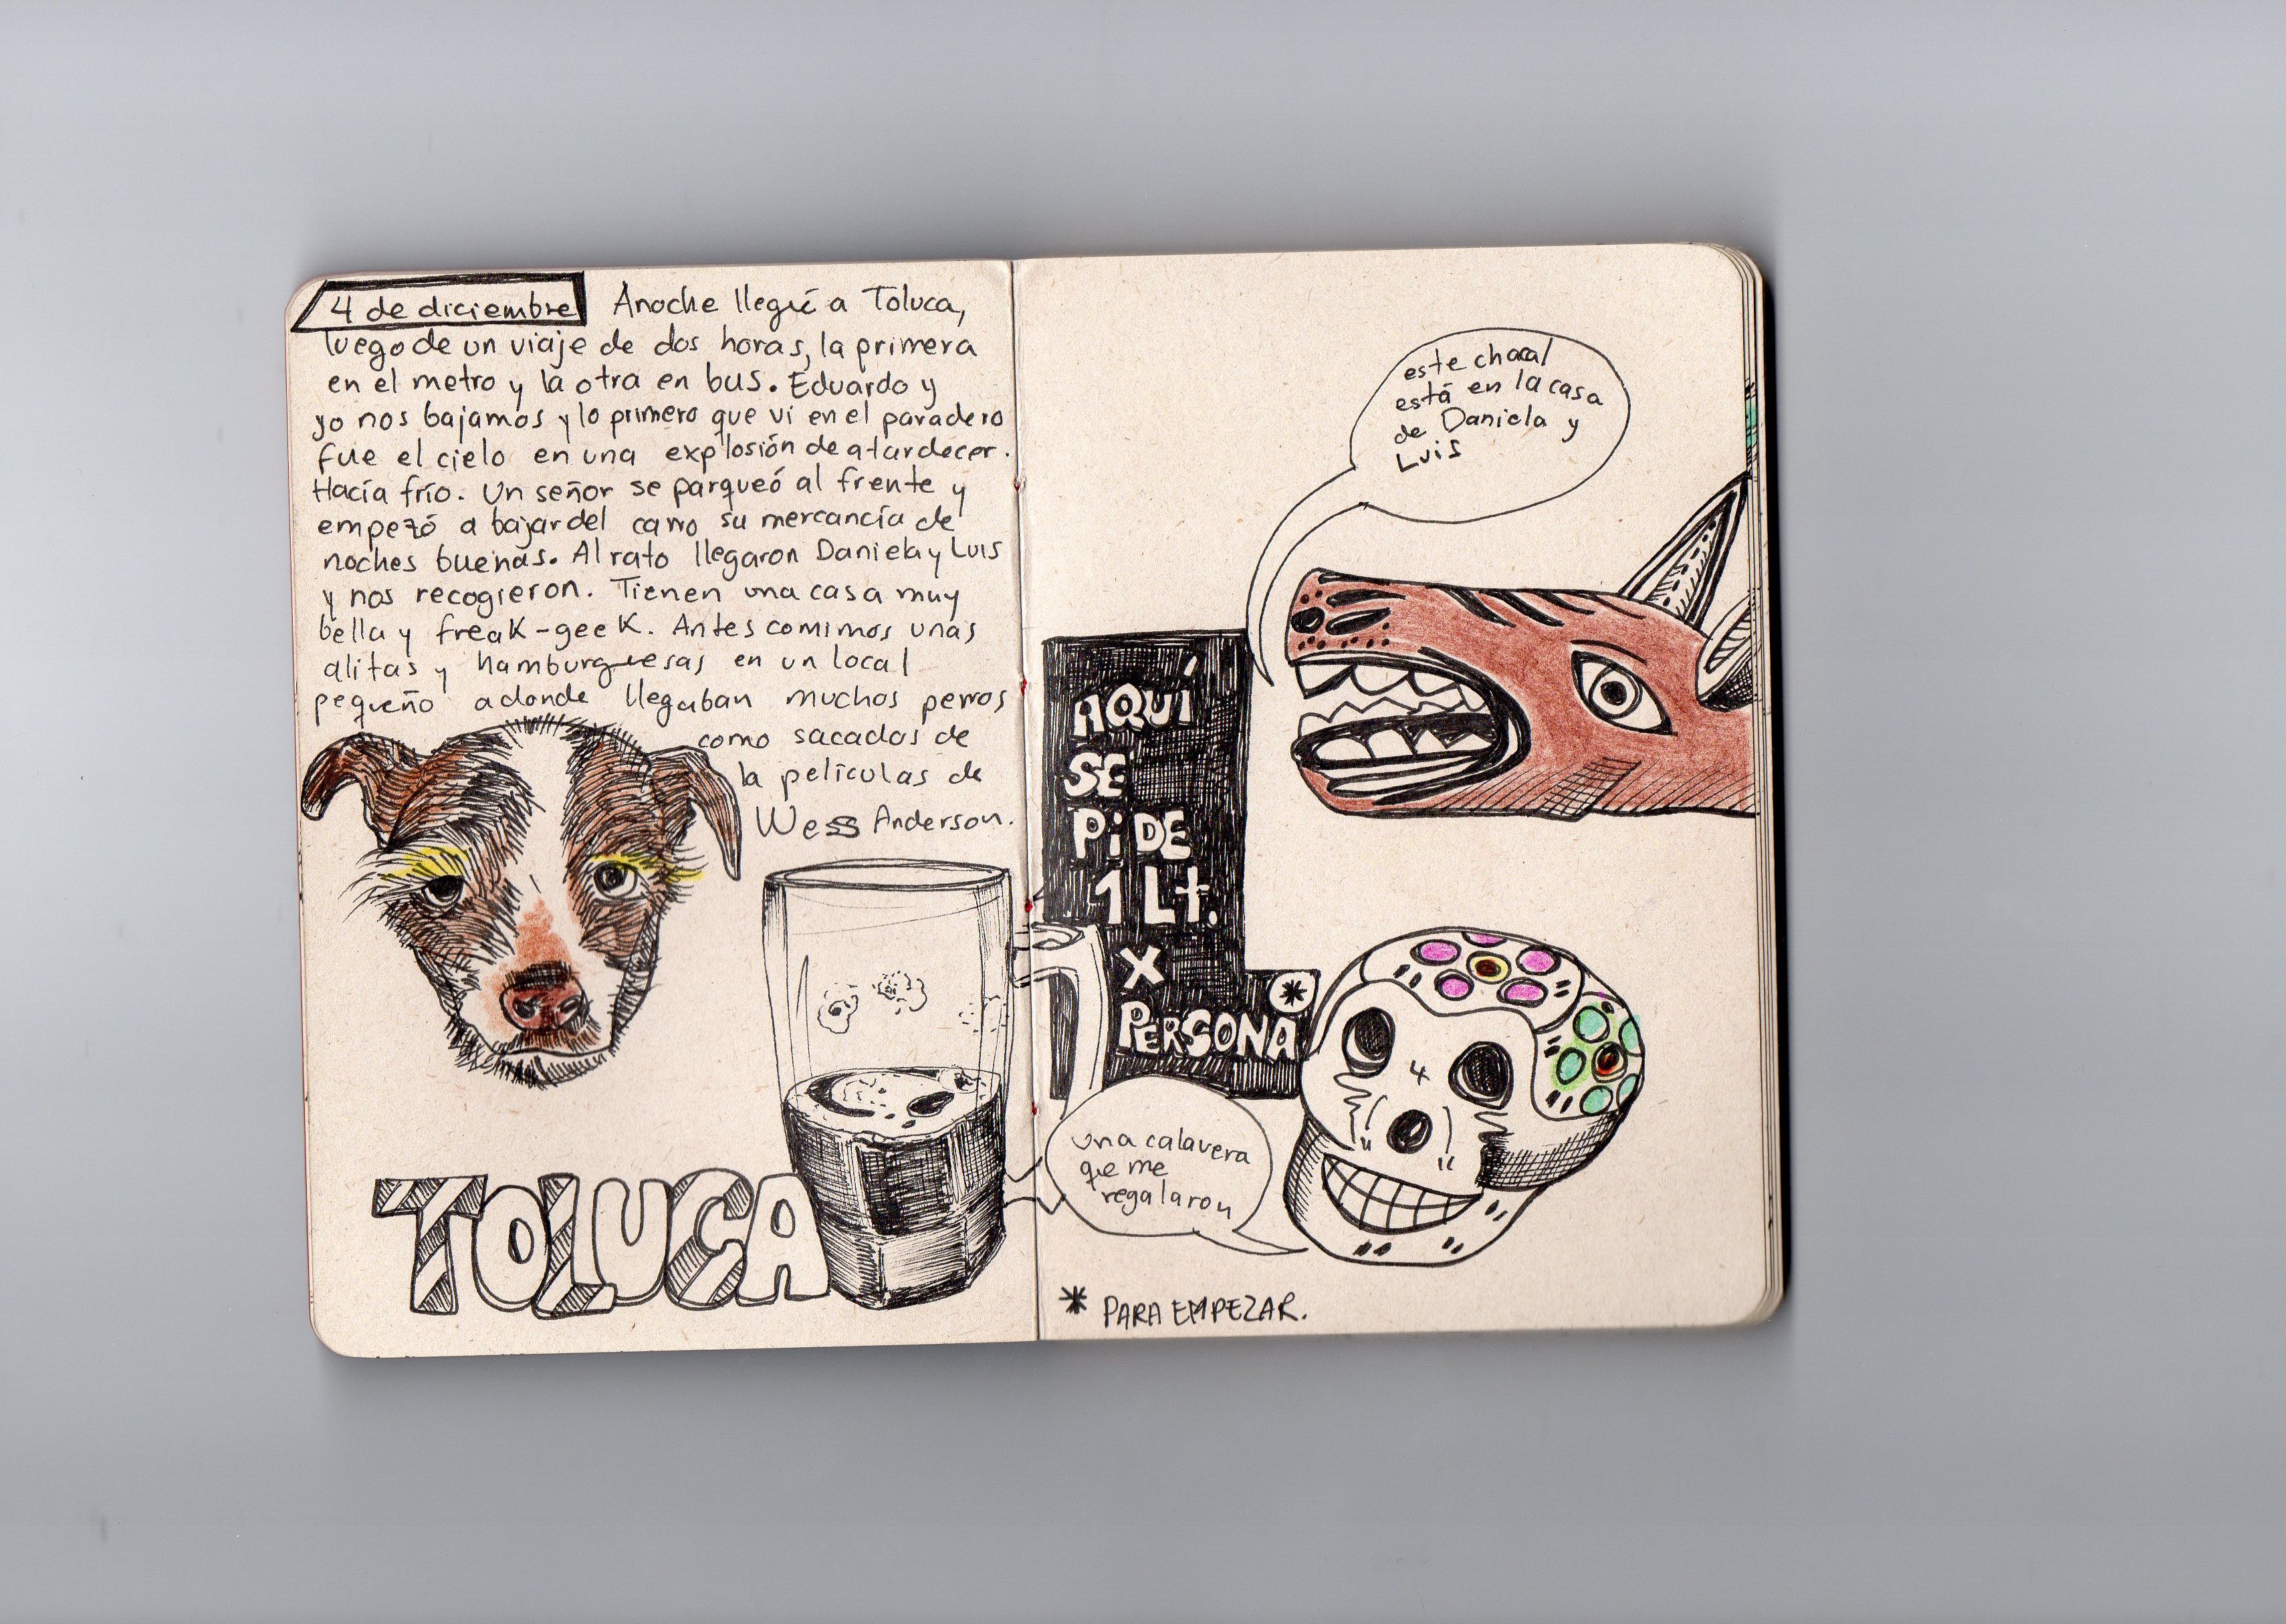 4 de diciembre Anoche llegué a Toluca,
luego de un viaje de dos horas, la primera
en el metro y la otra en bus. Eduardo y
yo nos bajamos y lo primero que vi en el paradero
fue el cielo en una explosión de atardecer.
Hacía frío. Un señor se parqueó al frente y
empezó a bajar del carro su mercancía de
noches buenas. Al rato llegaron Daniela y Luis
y nos recogieron. Tienen una casa muy
bella y freak-geek. Antes comimos unas
alitas y hamburguesas en un local
pequeño a donde llegaban muchos perros
como sacados de
la películas de
Wess Anderson.
TOLUCA
este chacal
está en la casa
de Daniela y
Luis
AQUÍ
SE
PiDE
1 Lt.
X
PERSONA *
una calavera
que me
regalaron
* PARA EMPEZAR.